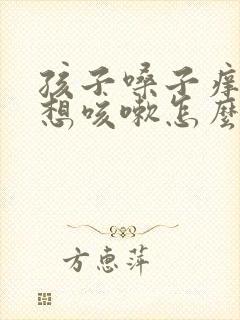 孩子嗓子痒
想咳嗽怎麼
方惠萍